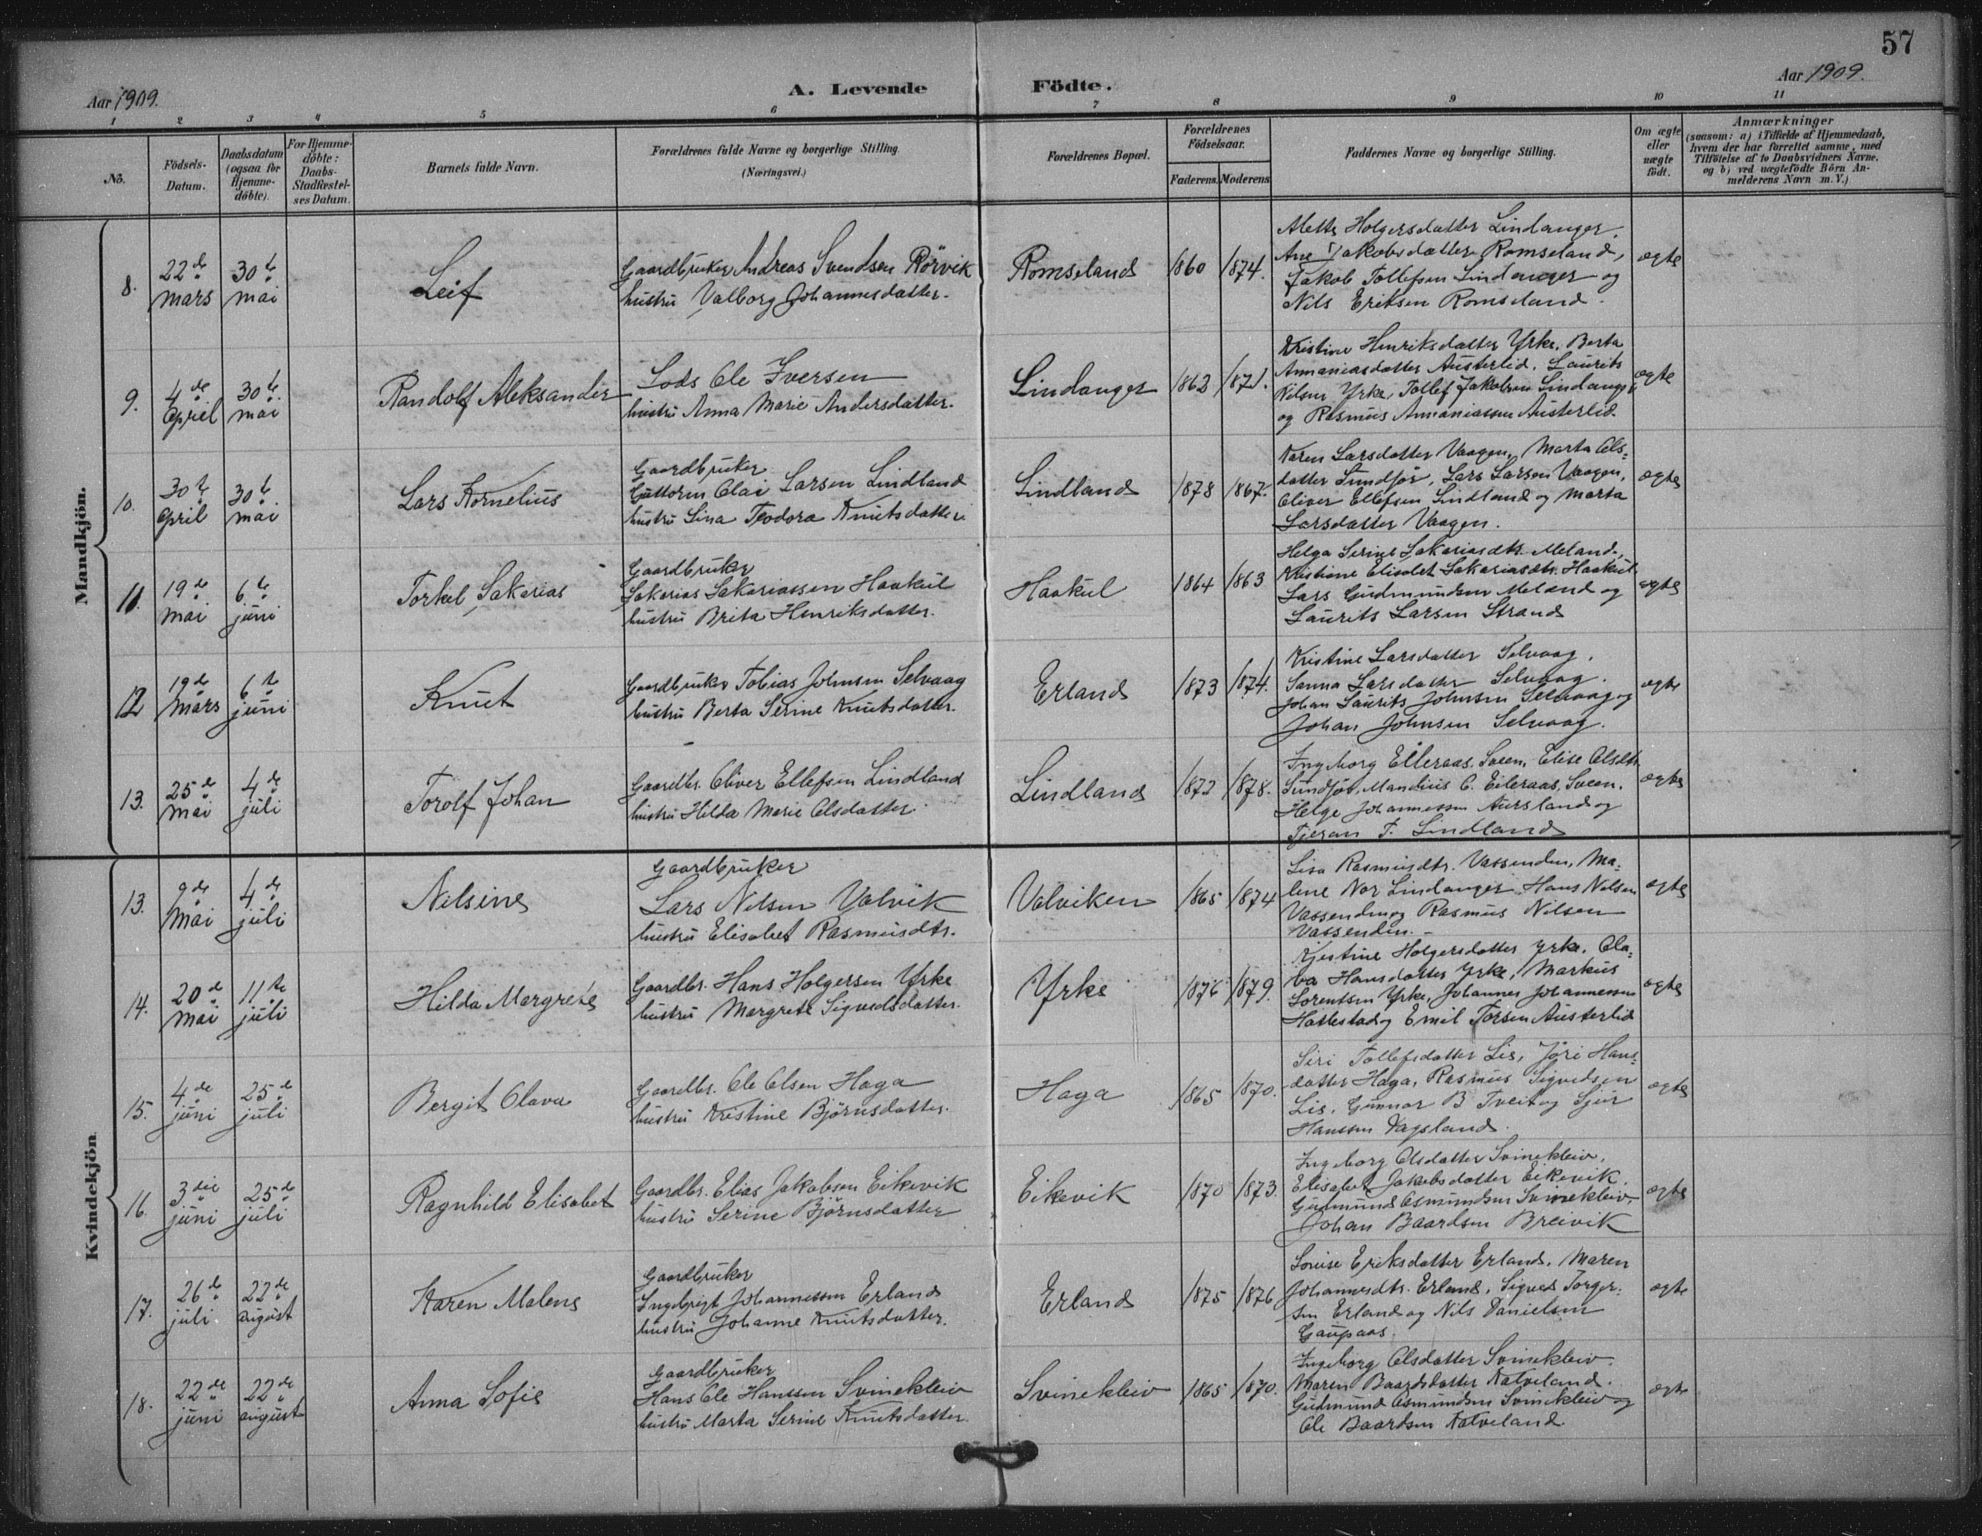 57
Aar 1909.
A. Levende Födte.
Aar 1909.
1 2 3 4 5 6 7 8 9 10 11
No.
Födsels-Datum.
Daabsdatum (ogsaa for Hjemme-döbte).
For Hjemme-döbte: Daabs-Stadfæstel-ses Datum.
Barnets fulde Navn.
Forældrenes fulde Navne og borgerlige Stilling.
(Næringsvei.)
Forældrenes Bopæl.
Forældrenes Födselsaar.
Faderens. Moderens.
Faddernes Navne og borgerlige Stilling.
Om ægte eller uægte födt.
Anmærkninger
(saasom: a) i Tilfælde af Hjemmedaab,
hvem der har forrettet samme, med
Tilföielse af to Daabsvidners Navne.
og b) ved uægtefödte Börn An-
melderens Navn m. V.)
Mandkjön.
8. 22de mars 30te mai Leif
Gaardbruker Andreas Svendsen Rörvik
hustru Valborg Johannesdatter.
Romseland 1860 1874.
Alette Holgersdatter Lindanger.
Ane Jakobsdatter Romseland,
Jakob Tollefsen Lindanger og
Nils Eriksen Romseland.
ægte
9. 4de April 30te mai Randolf Aleksander
Lods Ole Iversen
hustru Anna Marie Andersdatter.
Lindanger 1862 1871.
Kristine Henriksdatter Yrke, Berta
Annaniasdatter Austerlid, Laurits
Nilsen Yrke, Tollef Jakobsen Lindanger
og Rasmus Annaniassen Austerlid.
ægte
10. 30te April 30te mai Lars Kornelius
Gaardbruker
Guttorm Olai Larsen Lindland
hustru Lina Teodora Knutsdatter
Lindland 1878 1867.
Karen Larsdatter Vaagen, Marta Ols-
datter Sundför, Lars Larsen Vaagen,
Oliver Ellefsen Lindland og Marta
Larsdatter Vaagen.
ægte
11. 19de mai 6te juni Torkel Sakarias
Gaardbruker
Sakarias Sakariassen Haakul
hustru Brita Henriksdatter.
Haakul 1864 1863
Helga Serine Sakariasdtr. Meland,
Kristiane Elisabet Sakariasdtr. Haakul
Lars Gudmundsen Meland og
Laurits Larsen Strand
ægte
12 19de mars 6te juni Knut
Gaardbruker Tobias Johnsen Selvaag
hustru Berta Serine Knutsdatter.
Erland 1873 1874.
Kristine Larsdatter Selvaag,
Sanna Larsdatter Selvaag,
Johan Laurits Johnsen Selvaag og
Johan Johnsen Selvaag.
ægte
13. 25de mai 4de juli Torolf Johan
Gaardbr. Oliver Ellefsen Lindland
hustru Hilda Marie Olsdatter.
Lindland 1872 1878.
Ingeborg Eileraas, Sveen, Elise Olsdtr.
Sundför, Mandius O. Eileraas, Sveen,
Helge Johannessen Aursland og
Tjeran T. Lindland
ægte
Kvindekjön.
13. 9de Mai 4de juli Nilsine
Gaardbruker
Lars Nilsen Valvik
hustru Elisabet Rasmusdtr.
Valviken 1865 1874
Lisa Rasmusdtr. Vassenden, Ma-
lene Nor Lindanger, Hans Nilsen
Vassenden og Rasmus Nilsen
Vassenden.
ægte
14. 20de Mai 11te juli Hilda Margrete
Gaardbr. Hans Holgersen Yrke
hustru Margrete Sigvedsdatter.
Yrke 1876 1879.
Kjestine Holgersdatter Yrke, Ola-
va Hansdatter Yrke, Markus
Sorentsen Yrke, Johannes Johannessen
Hattestad og Emil Torsen Austerlid
ægte
15. 4de juni 25de juli Bergit Olava
Gaardbr. Ole Olsen Haga
hustru Kristine Björnsdatter.
Haga 1865 1870.
Siri Tollefsdatter Lis, Jöri Hans-
datter Haga, Rasmus Sigvedsen
Lis, Gunnar B Tveit og Sjur
Hanssen Vagsland.
ægte
16. 3die juni 25de juli Ragnhild Elisabet
Gaardbr. Elias Jakobsen Eikevik
hustru Serine Björnsdatter
Eikevik 1870 1873.
Ingeborg Olsdatter Svinekleiv,
Elisabet Jakobsdatter Eikevik.
Gudmund Asmundsen Svinekleiv
Johan Baardsen Breivik
ægte
17. 26de juli 22de august Karen Malene
Gaardbruker
Ingebrigt Johannessen Erland
hustru Johanne Knutsdatter.
Erland 1875 1876
Lovise Eriksdatter Erland, Maren
Johannesdtr. Erland, Sigved Torger-
sen Erland og Nils Danielsen
Gaupaas.
ægte
18. 22de juni 22de august Anna Sofie
Gaardbruker
Hans Ole Hanssen Svinekleiv
hustru Marta Serine Knutsdatter.
Svinekleiv 1865 1870.
Ingeborg Olsdatter Svinekleiv.
Maren Baardsdatter Natveland.
Gudmund Asmundsen Svinekleiv og
Ole Baardsen Natveland.
ægte